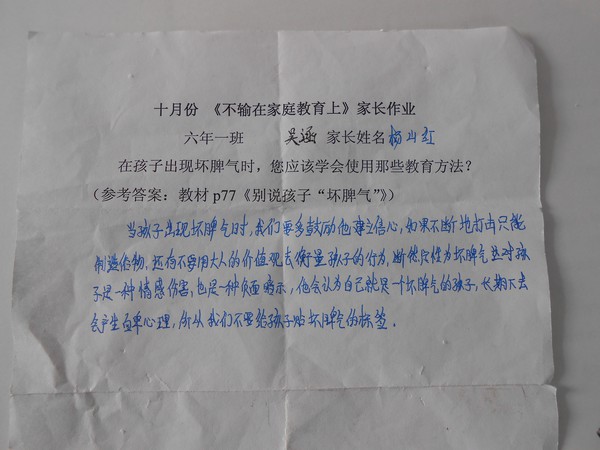 十月份 《不输在家庭教育上》家长作业
六年一班 吴涵 家长姓名 杨山红
在孩子出现坏脾气时，您应该学会使用那些教育方法？
（参考答案：教材 p77《别说孩子“坏脾气”》）
当孩子出现坏脾气时，我们要多鼓励他建立信心，如果不断地打击只能
制造伤物，还有不要用大人的价值观去衡量孩子的行为，断然只作为坏脾气 这对孩
子是一种情感伤害，也是一种负面暗示，他会认为自己就是个坏脾气的孩子，长期下去
会产生自卑心理，所以我们不要给孩子贴坏脾气的标签．